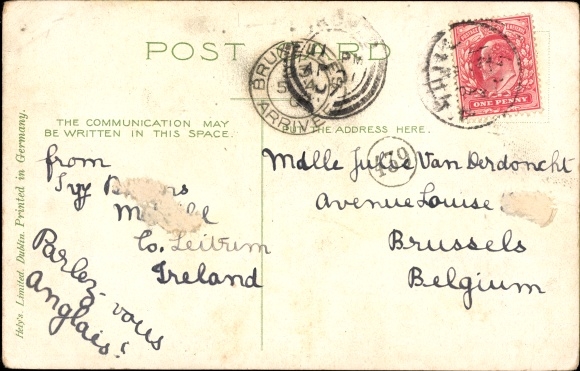 POST CARD
BRUXELLES
ARRIVEE
ONE PENNY
THE COMMUNICATION MAY
BE WRITTEN IN THIS SPACE.
BUT THE ADDRESS HERE.
from
Ivy
Co. Leitrim
Ireland
Parlez-vous
anglais?
Mdlle Julie Van Derdoncht
Avenue Louise
Brussels
Belgium
Hely's Limited. Dublin. Printed in Germany.